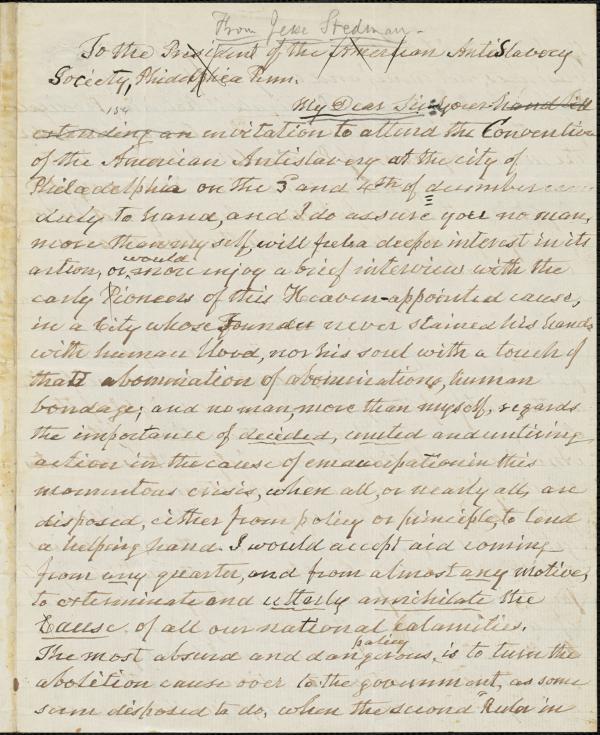 From Jesse Stedman.
To the President of the American AntiSlavery
Society, Philidelphea Penn.
My Dear Sir, your hand bill
extending an invitation to attend the Convention
of the American Antislavery at the city of
Philadelphia on the 3 and 4th of december came
duly to hand, and I do assure you no man,
more than my self, will feel a deeper interest in its
would
action, or more enjoy a brief interview with the
early Pioneers of this Heaven-appointed cause,
in a City whose Founder never stained his hands
with human blood, nor his soul with a touch of
that abomination of abominations, human
bondage; and no man, more than myself, regards
the importance of decided, united and untiring
action in the cause of emancipation in this
momentous crisis, when all, or nearly all, are
disposed, either from policy or principle, to lend
a helping hand. I would accept aid coming
from any quarter, and from almost any motive,
to exterminate and utterly annihilate the
Cause of all our national calamities.
policy
The most absurd and dangerous, is to turn the
abolition cause over to the government, as some
seem disposed to do, when the second Ruler in